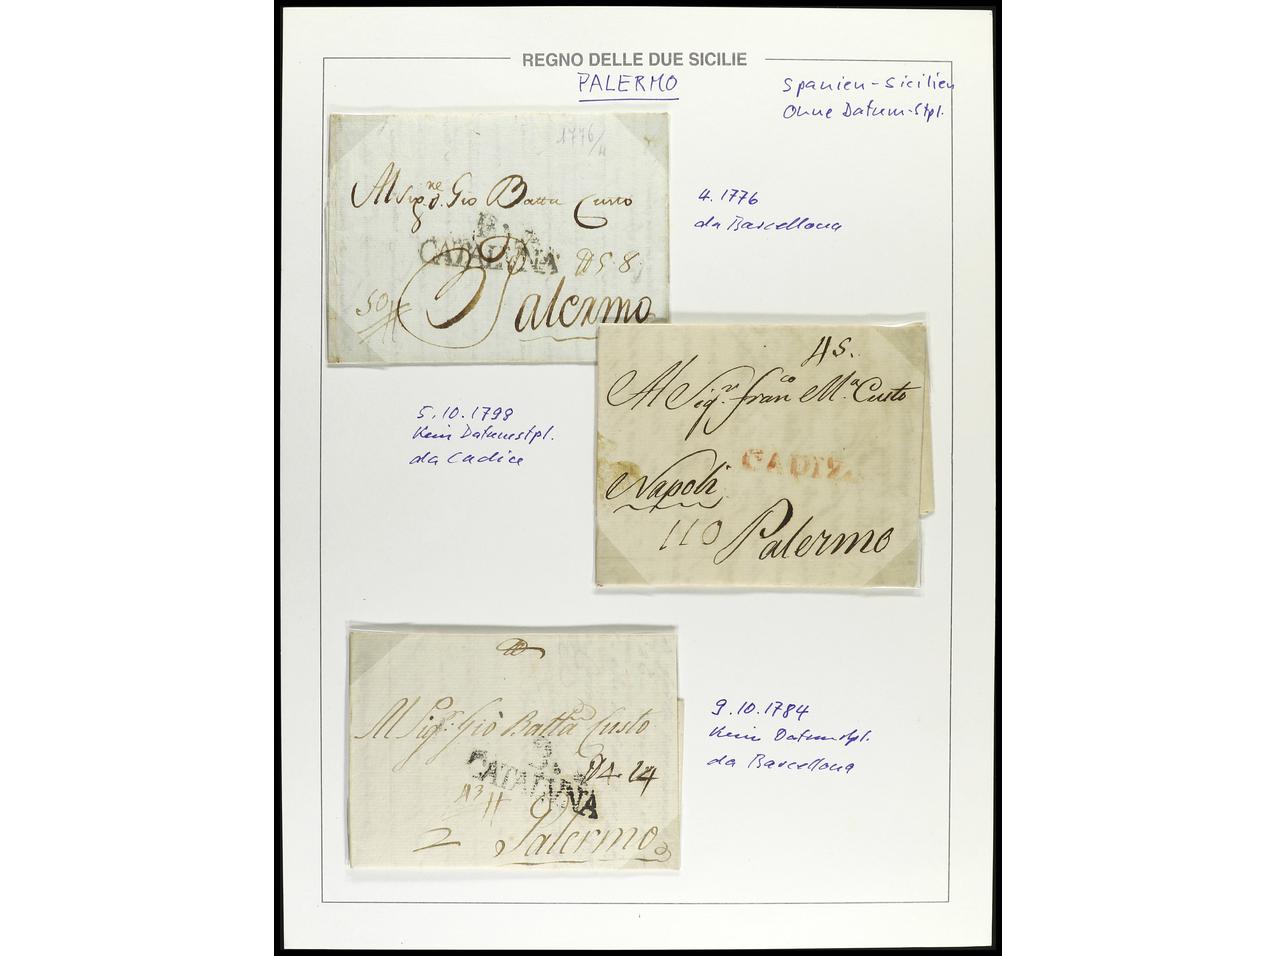 REGNO DELLE DUE SICILIE
PALERMO
Spanien-Sicilien
Ohne Datum-Stpl.
1776/4
Al Sig.re d. Gio Batta Custo
CATALUÑA
5 8
50
Palermo
4.1776
da Barcellona
5.10.1798
Kein Datumstpl.
da Cadice
4s.
Al Sigre. Franco. Ma. Custo
CADIZ
Napoli
110 Palermo
Al Sigr. Giò Batta Custo
CATALUÑA
4. 24
2 Palermo
9.10.1784
Kein Datumstpl.
da Barcellona